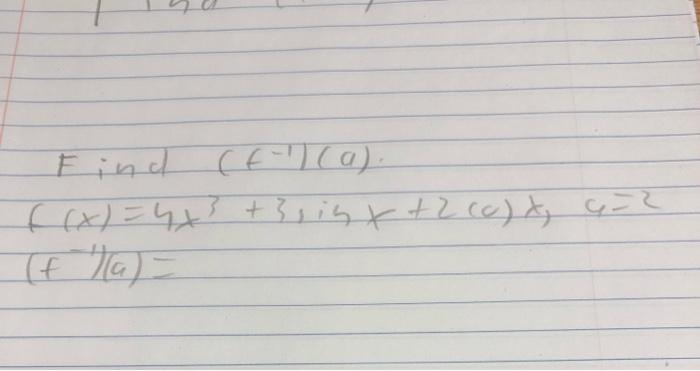 Find (f⁻¹)(a).
f(x)=4x³ +3sinx+2cosx, a=2
(f⁻¹)(a)=